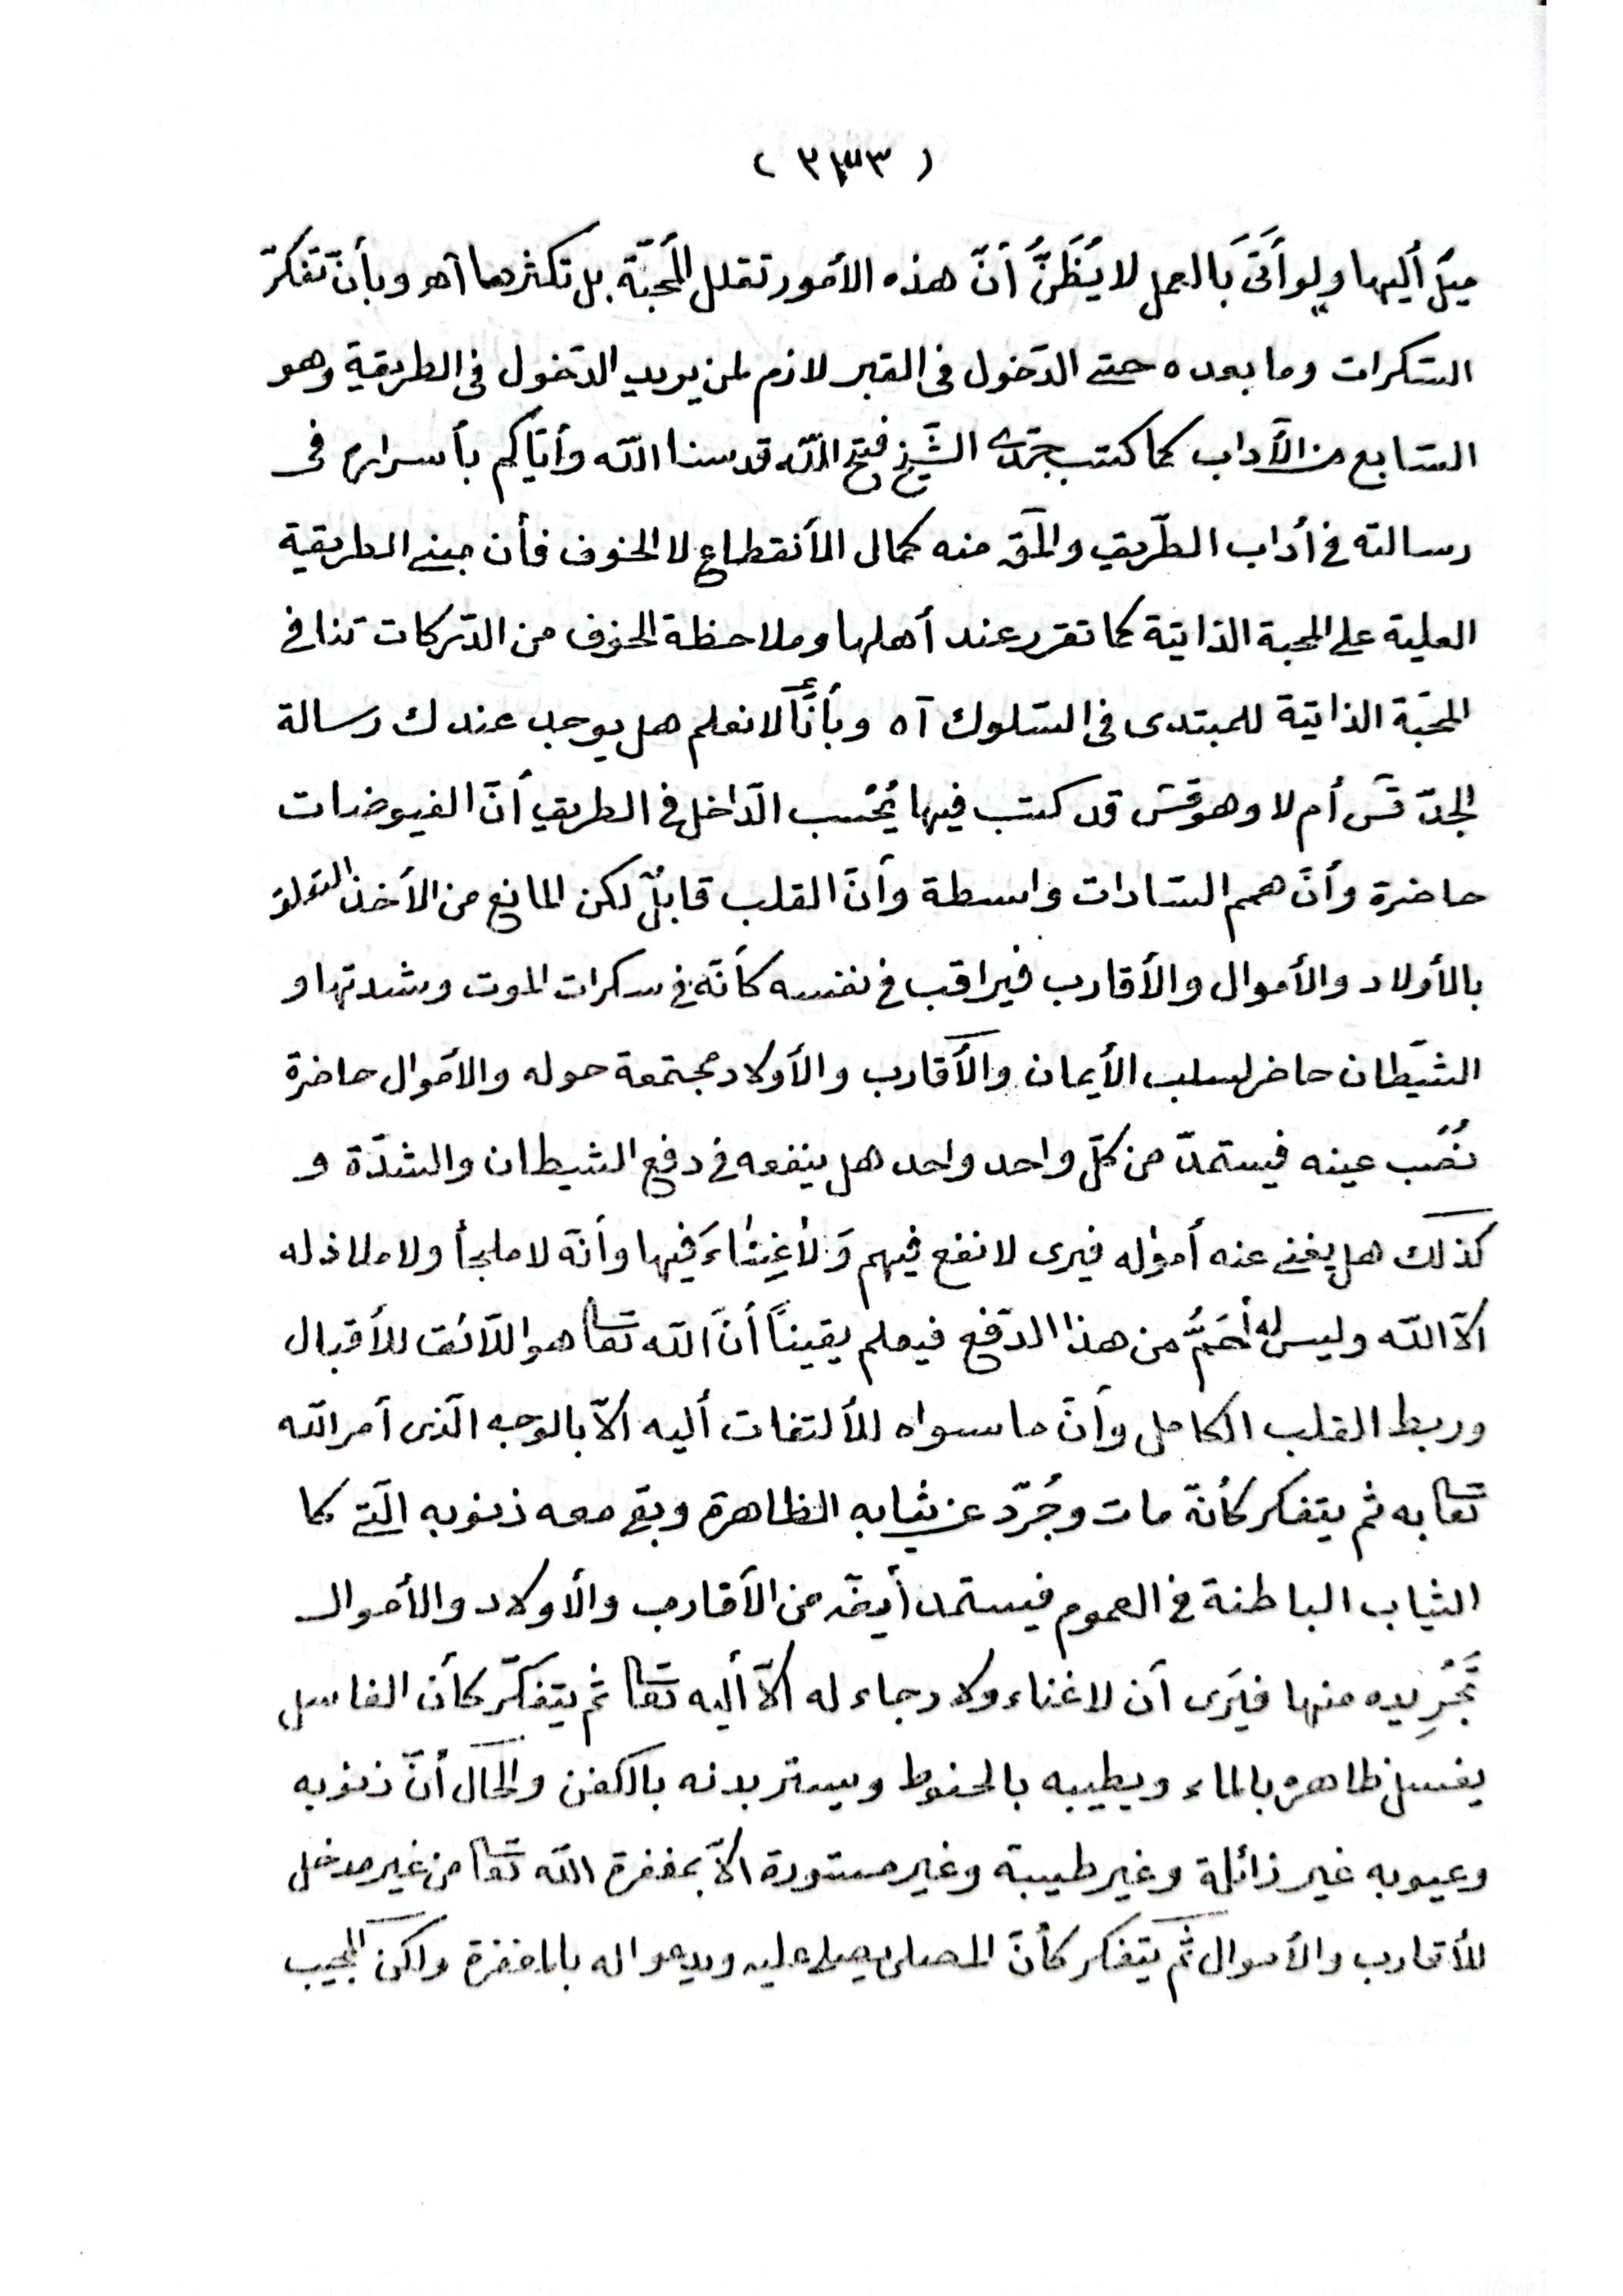 ( ٢٣٣ )
ميل أليها ولو أَتَى بالعمل لا يُظَنُّ أنّ هذه الأمور تقلل المحبّة بل تكثرها آهـ وبأنّ تفكّر
السّكرات وما بعده حتى الدّخول فى القبر لازم لمن يريد الدّخول فى الطريقة وهو
السّابع من الآداب كما كتب جدّى الشّيخ فتح اللّه قدسنا اللّه وأيّاكم بأسراره فى
رسالته فى أداب الطّريق والمق منه كمال الأنقطاع لا الخوف فأن مبنى الطريقة
العلية على المحبة الذاتية كما تقرر عند أهلها وملاحظة الخوف من الدّركات تنافى
المحبّة الذاتية للمبتدى فى السّلوك آه وبأنّا لا نعلم هل يوجد عندك رسالة
الجدّ قسّ أم لا وهو قسّ قد كتب فيها يُحْسب الدّاخل فى الطريق أنّ الفيوضات
حاضرة وأنّ همم السّادات واسطة وأنّ القلب قابلٌ لكن المانع من الأخذ التعلق
بالأولاد والأموال والأقارب فيراقب فى نفسه كأنّه فى سكرات الموت وشدتها و
الشّيطان حاضر لسلب الأيمان والأقارب والأولاد مجتمعة حوله والأموال حاضرة
نُصْب عينه فيستمدّ من كلّ واحد واحد هل ينفعه فى دفع الشيطان والشدّة و
كذلك هل يغنى عنه أمواله فيرى لا نفع فيهم وَلاٰ غِنٰاءَ فيها وأنّه لا ملجأ ولا ملاذ له
الّا اللّه وليس له أهَمُّ من هذا الدّفع فيعلم يقيناً أنّ اللّه تعا هو اللّائق للأقبال
وربط القلب الكامل وأنّ ما سواه للألتفات أليه الّا بالوجه الّذى أمر اللّه
تعا به ثم يتفكر كأنّه مات وجُرّد عن ثيابه الظاهرة وبقى معه ذنوبه الّتى كا
الثياب الباطنة فى العموم فيستمد أيضه من الأقارب والأولاد والأموال
تَجْرِيده منها فيَرى أن لا غناء ولا رجاء له الّا أليه تعا ثم يتفكّر كأن الغاسل
يغسل ظاهره بالماء ويطيبه بالحنوط ويستر بدنه بالكفن والحال أنّ ذنوبه
وعيوبه غير زائلة وغير طيبة وغير مستورة الّا بمغفرة اللّه تعا من غير مدخل
للأقارب والأموال ثم يتفكر كأنّ المصلى يصلى عليه ويدعوا له بالمغفرة ولكن المجيب